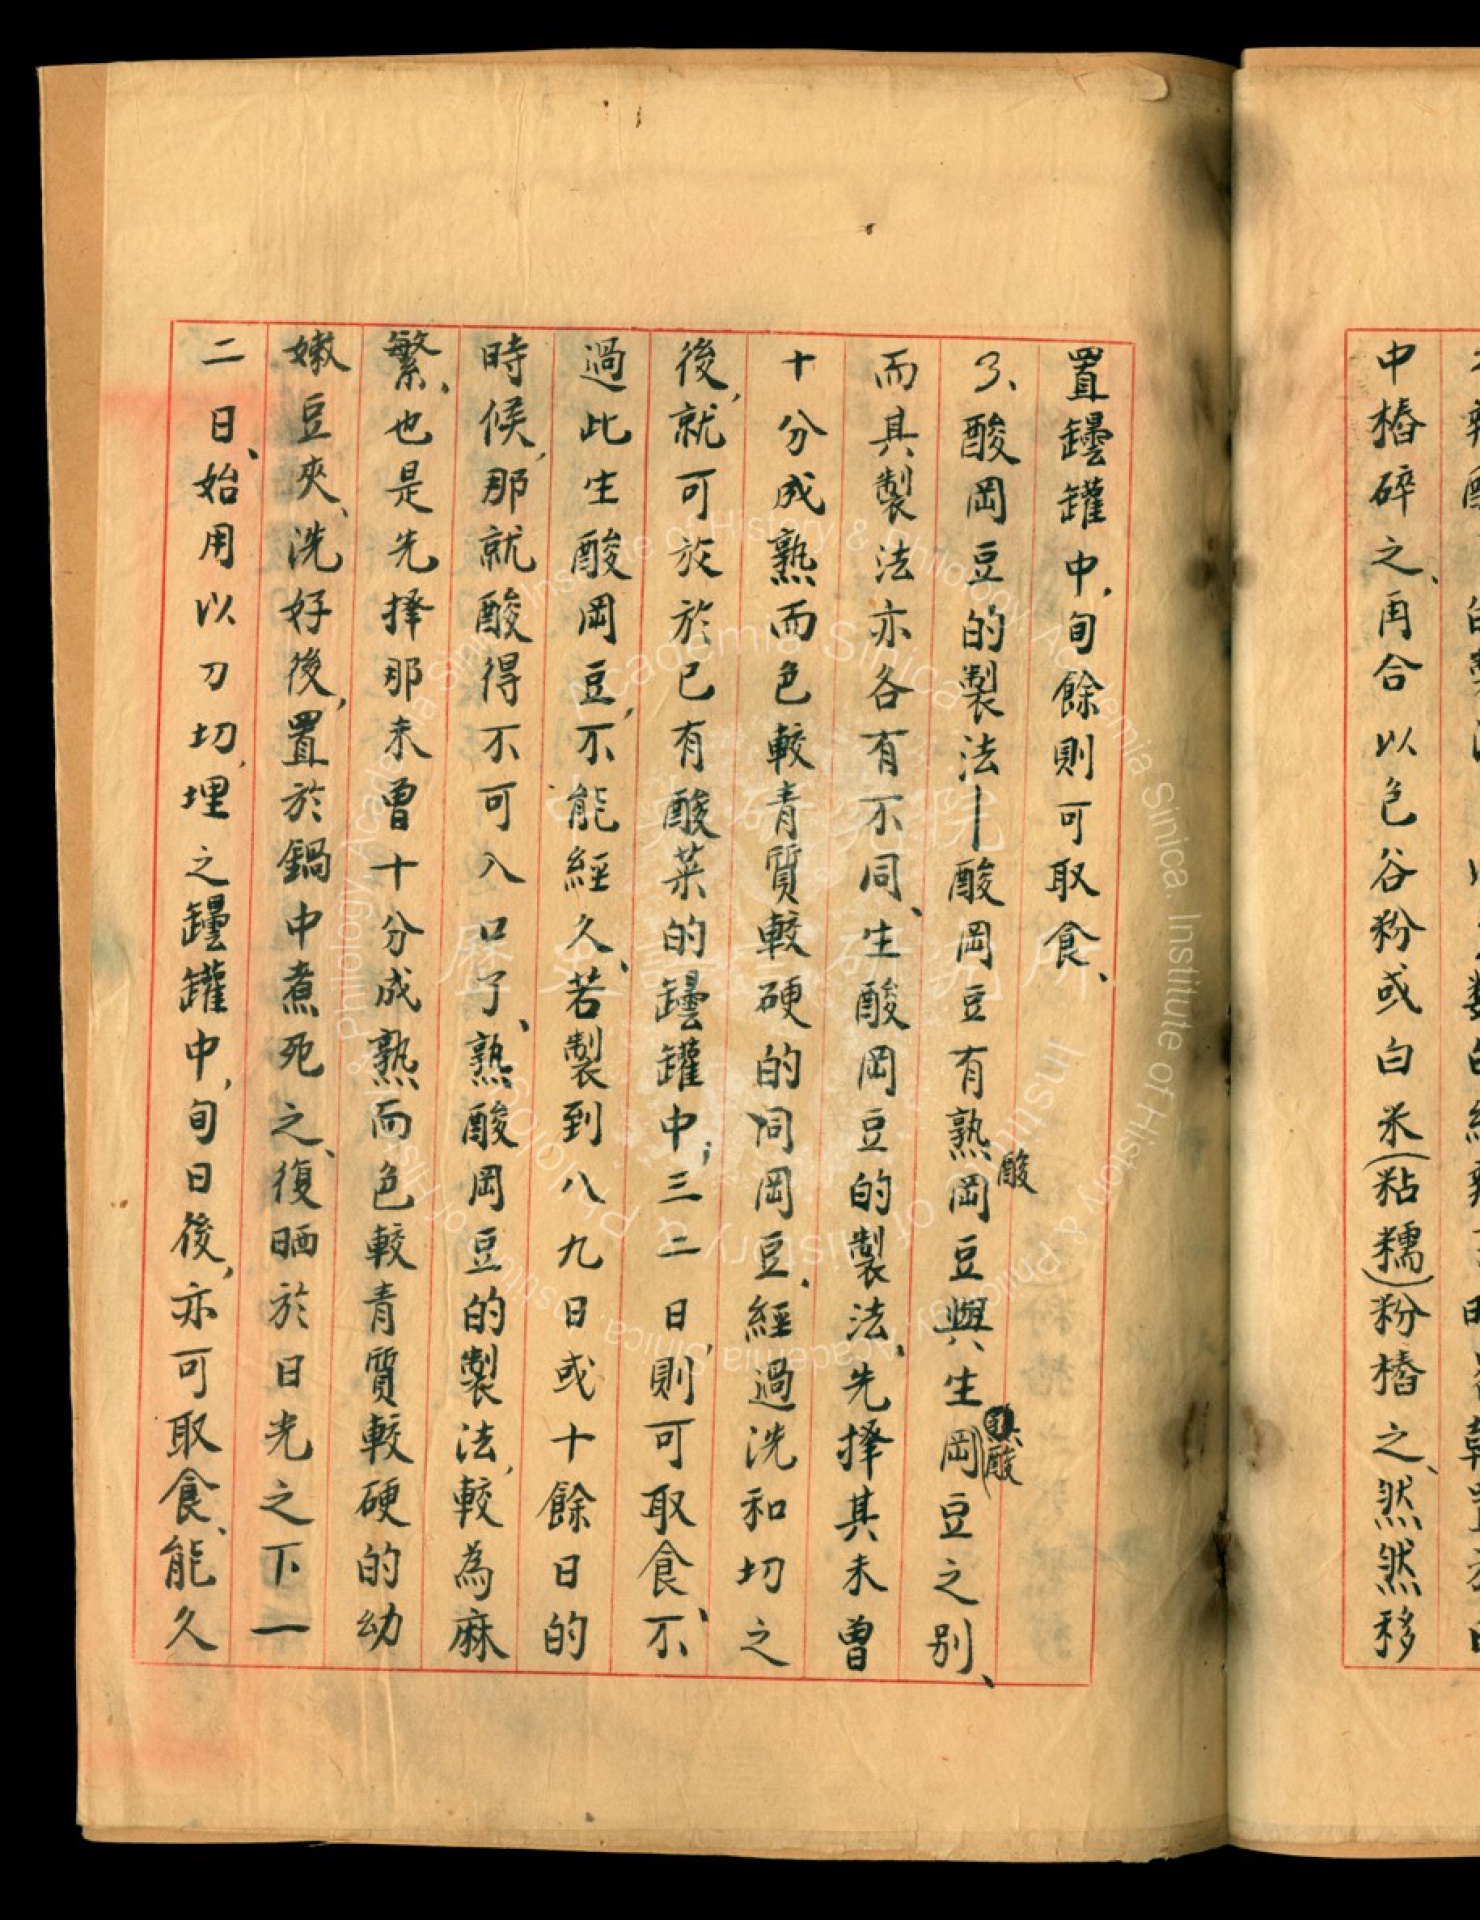 中樁碎之、再合以色谷粉或白米(粘糯)粉樁之、然然移
置罎罐中，旬餘則可取食、
3、酸岡豆的製法—酸岡豆有熟酸岡豆與生酸岡豆之別、
而其製法亦各有不同、生酸岡豆的製法、先擇其未曾
十分成熟而色較青質較硬的岡豆、經過洗和切之
後，就可放於已有酸菜的罎罐中；三二日，則可取食、不
過此生酸岡豆，不能經久、若製到八九日或十餘日的
時候，那就酸得不可入口了、熟酸岡豆的製法，較為麻
繁、也是先擇那未曾十分成熟而色較青質較硬的幼
嫩豆夾、洗好後，置於鍋中煮死之、復晒於日光之下一
二日、始用以刀切，埋之罎罐中，旬日後，亦可取食、能久